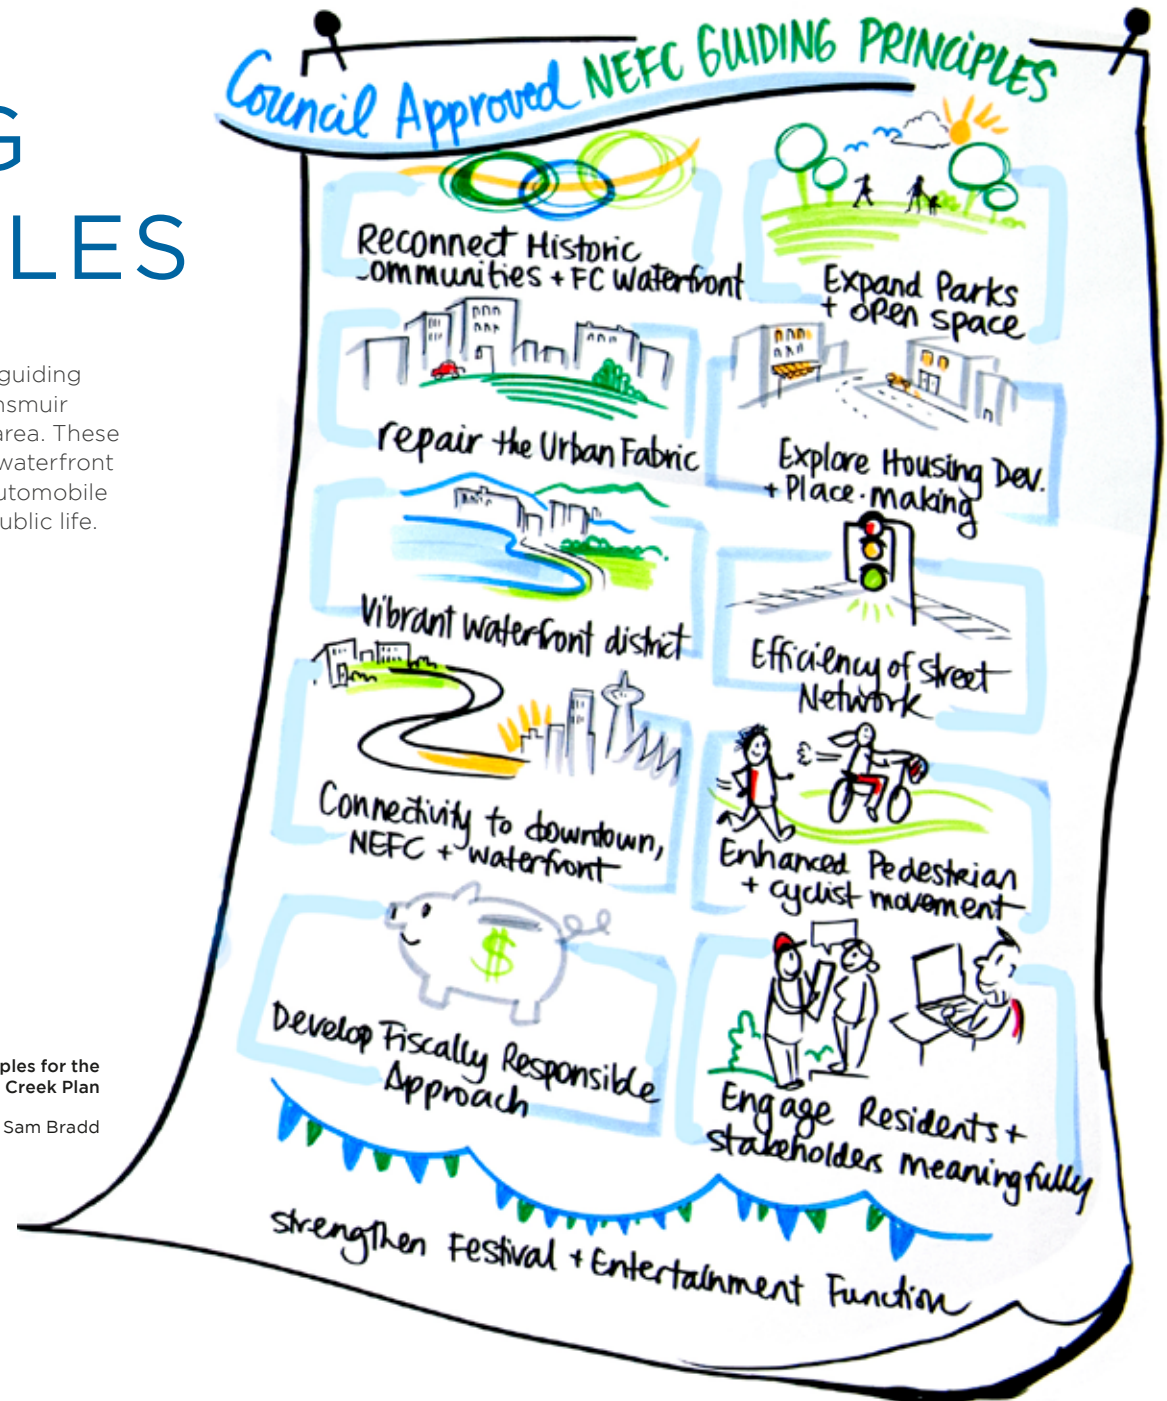 G
LES
guiding
nsmuir
area. These
waterfront
utomobile
ublic life.
ples for the
Creek Plan
Sam Bradd
Council Approved NEFC GUIDING PRINCIPLES
Reconnect Historic
Communities + FC Waterfront
Expand Parks
+ open space
repair the Urban Fabric
Explore Housing Dev.
+ Place-making
Vibrant waterfront district
Efficiency of Street
Network
Connectivity to downtown,
NEFC + waterfront
Enhanced Pedestrian
+ cyclist movement
$
Develop Fiscally Responsible
Approach
Engage Residents +
stakeholders meaningfully
strengthen Festival + Entertainment Function